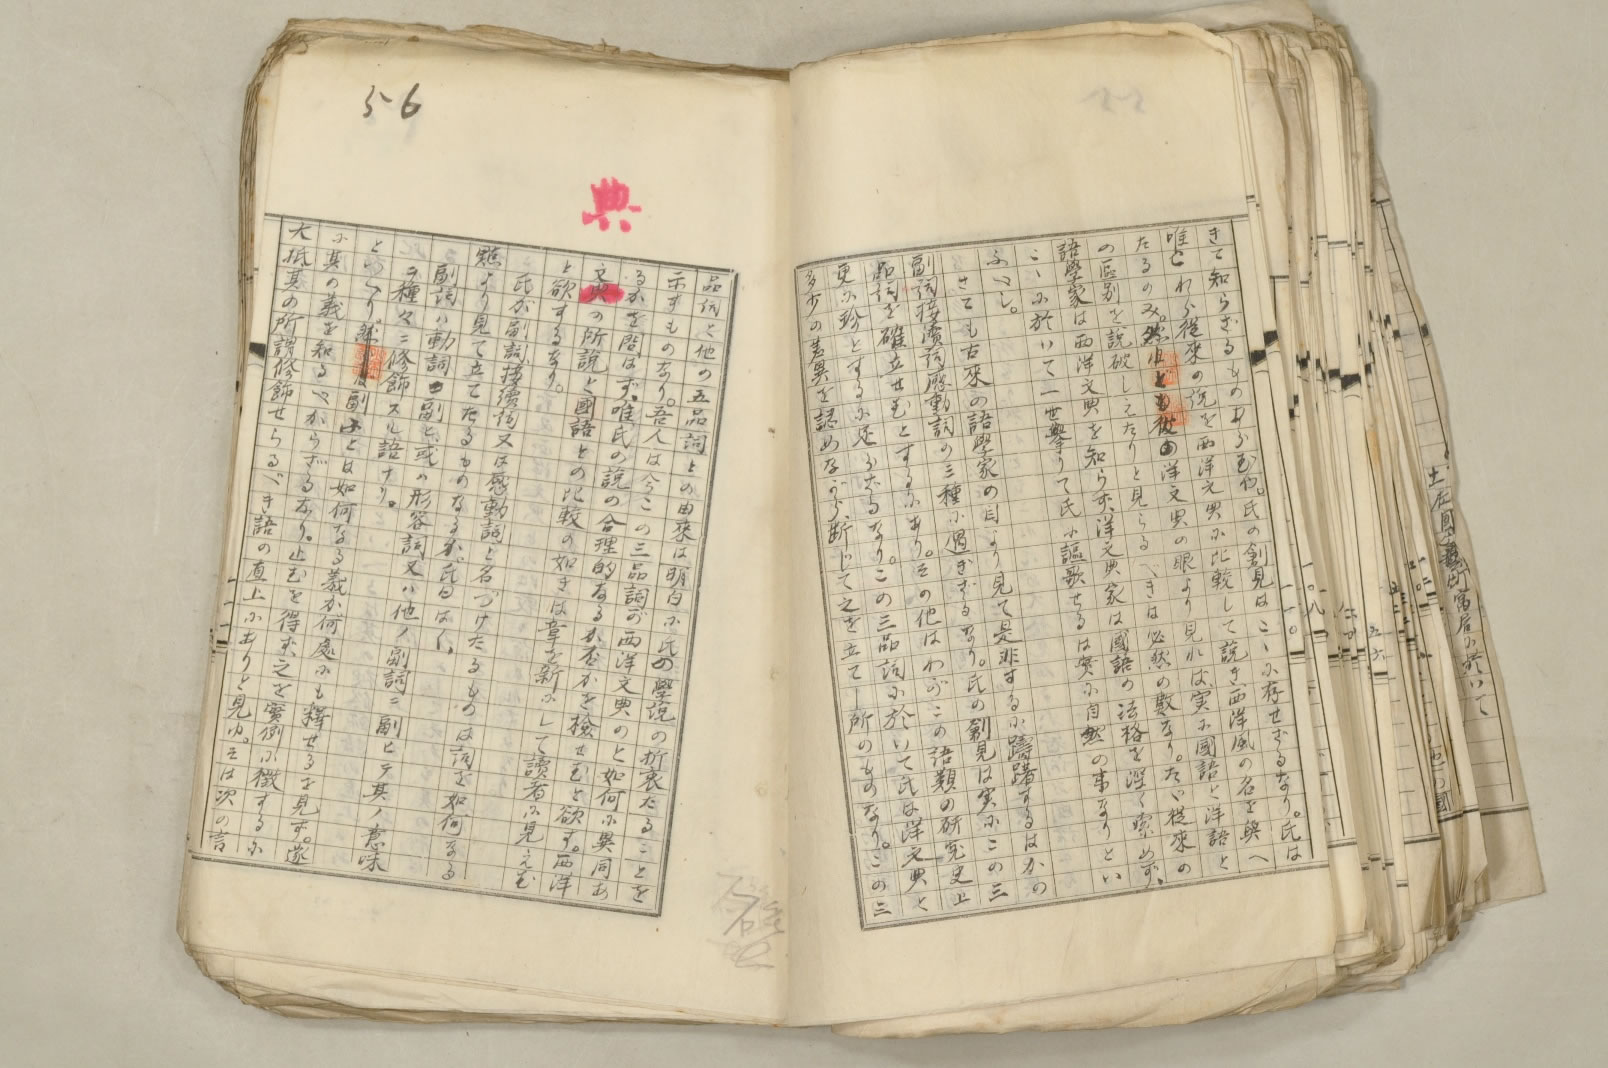 きて知らざるものあらむや。氏の創見はこゝに存せざるなり。氏は
唯これら從來の説を西洋文典に比較して説き西洋風の名を與へ
たるのみ。然れども彼の洋文典の眼より見れば実に國語と洋語と
の區別を説破しえたりと見らるべきは必然の數なり。たゞ從來の
語學家は西洋文典を知らず、洋文典家は國語の法格を深く索めず、
こゝに於いて一世擧りて氏に謳歌せるは実に自然の事なりとい
ふべし。
さても古來の語學家の目より見て是非するに躊躇するはかの
副詞接續詞感動詞の三種に過ぎざるなり。氏の創見は実にこの三
品詞を確立せむとするにあり。その他はわがこの語類の研究史上
更に珍とするに足らざるなり。この三品詞に於いて氏は洋文典と
多少の差異を認めながら、断じて之を立てし所のものなり。この三
56
典
品詞と他の五品詞との由來は明白に氏の學説の折衷たることを
示すものなり。吾人は今この三品詞が西洋文典のと如何に異同あ
るかを問はず。唯氏の説の合理的なるか否かを檢せむと欲す。西洋
文典の所説と國語との比較の如きは章を新にして讀者に見えむ
と欲するなり。
氏が副詞、接續詞又は感動詞と名づけたるものは詞を如何なる
點より見て立てたるものなるか。氏曰はく、
副詞ハ動詞ニ副ヒ、或ハ形容詞又ハ他ノ副詞ニ副ヒテ其ノ意味
ヲ種々ニ修飾スル語ナリ。
といへり。副ふとは如何なる義か何處にも釋せるを見ず。遂
に其の義を知るべからざるなり。止むを得ず之を實例に徴するに
大抵其の所謂修飾せらるべき語の直上にありと見ゆ。そは次の言